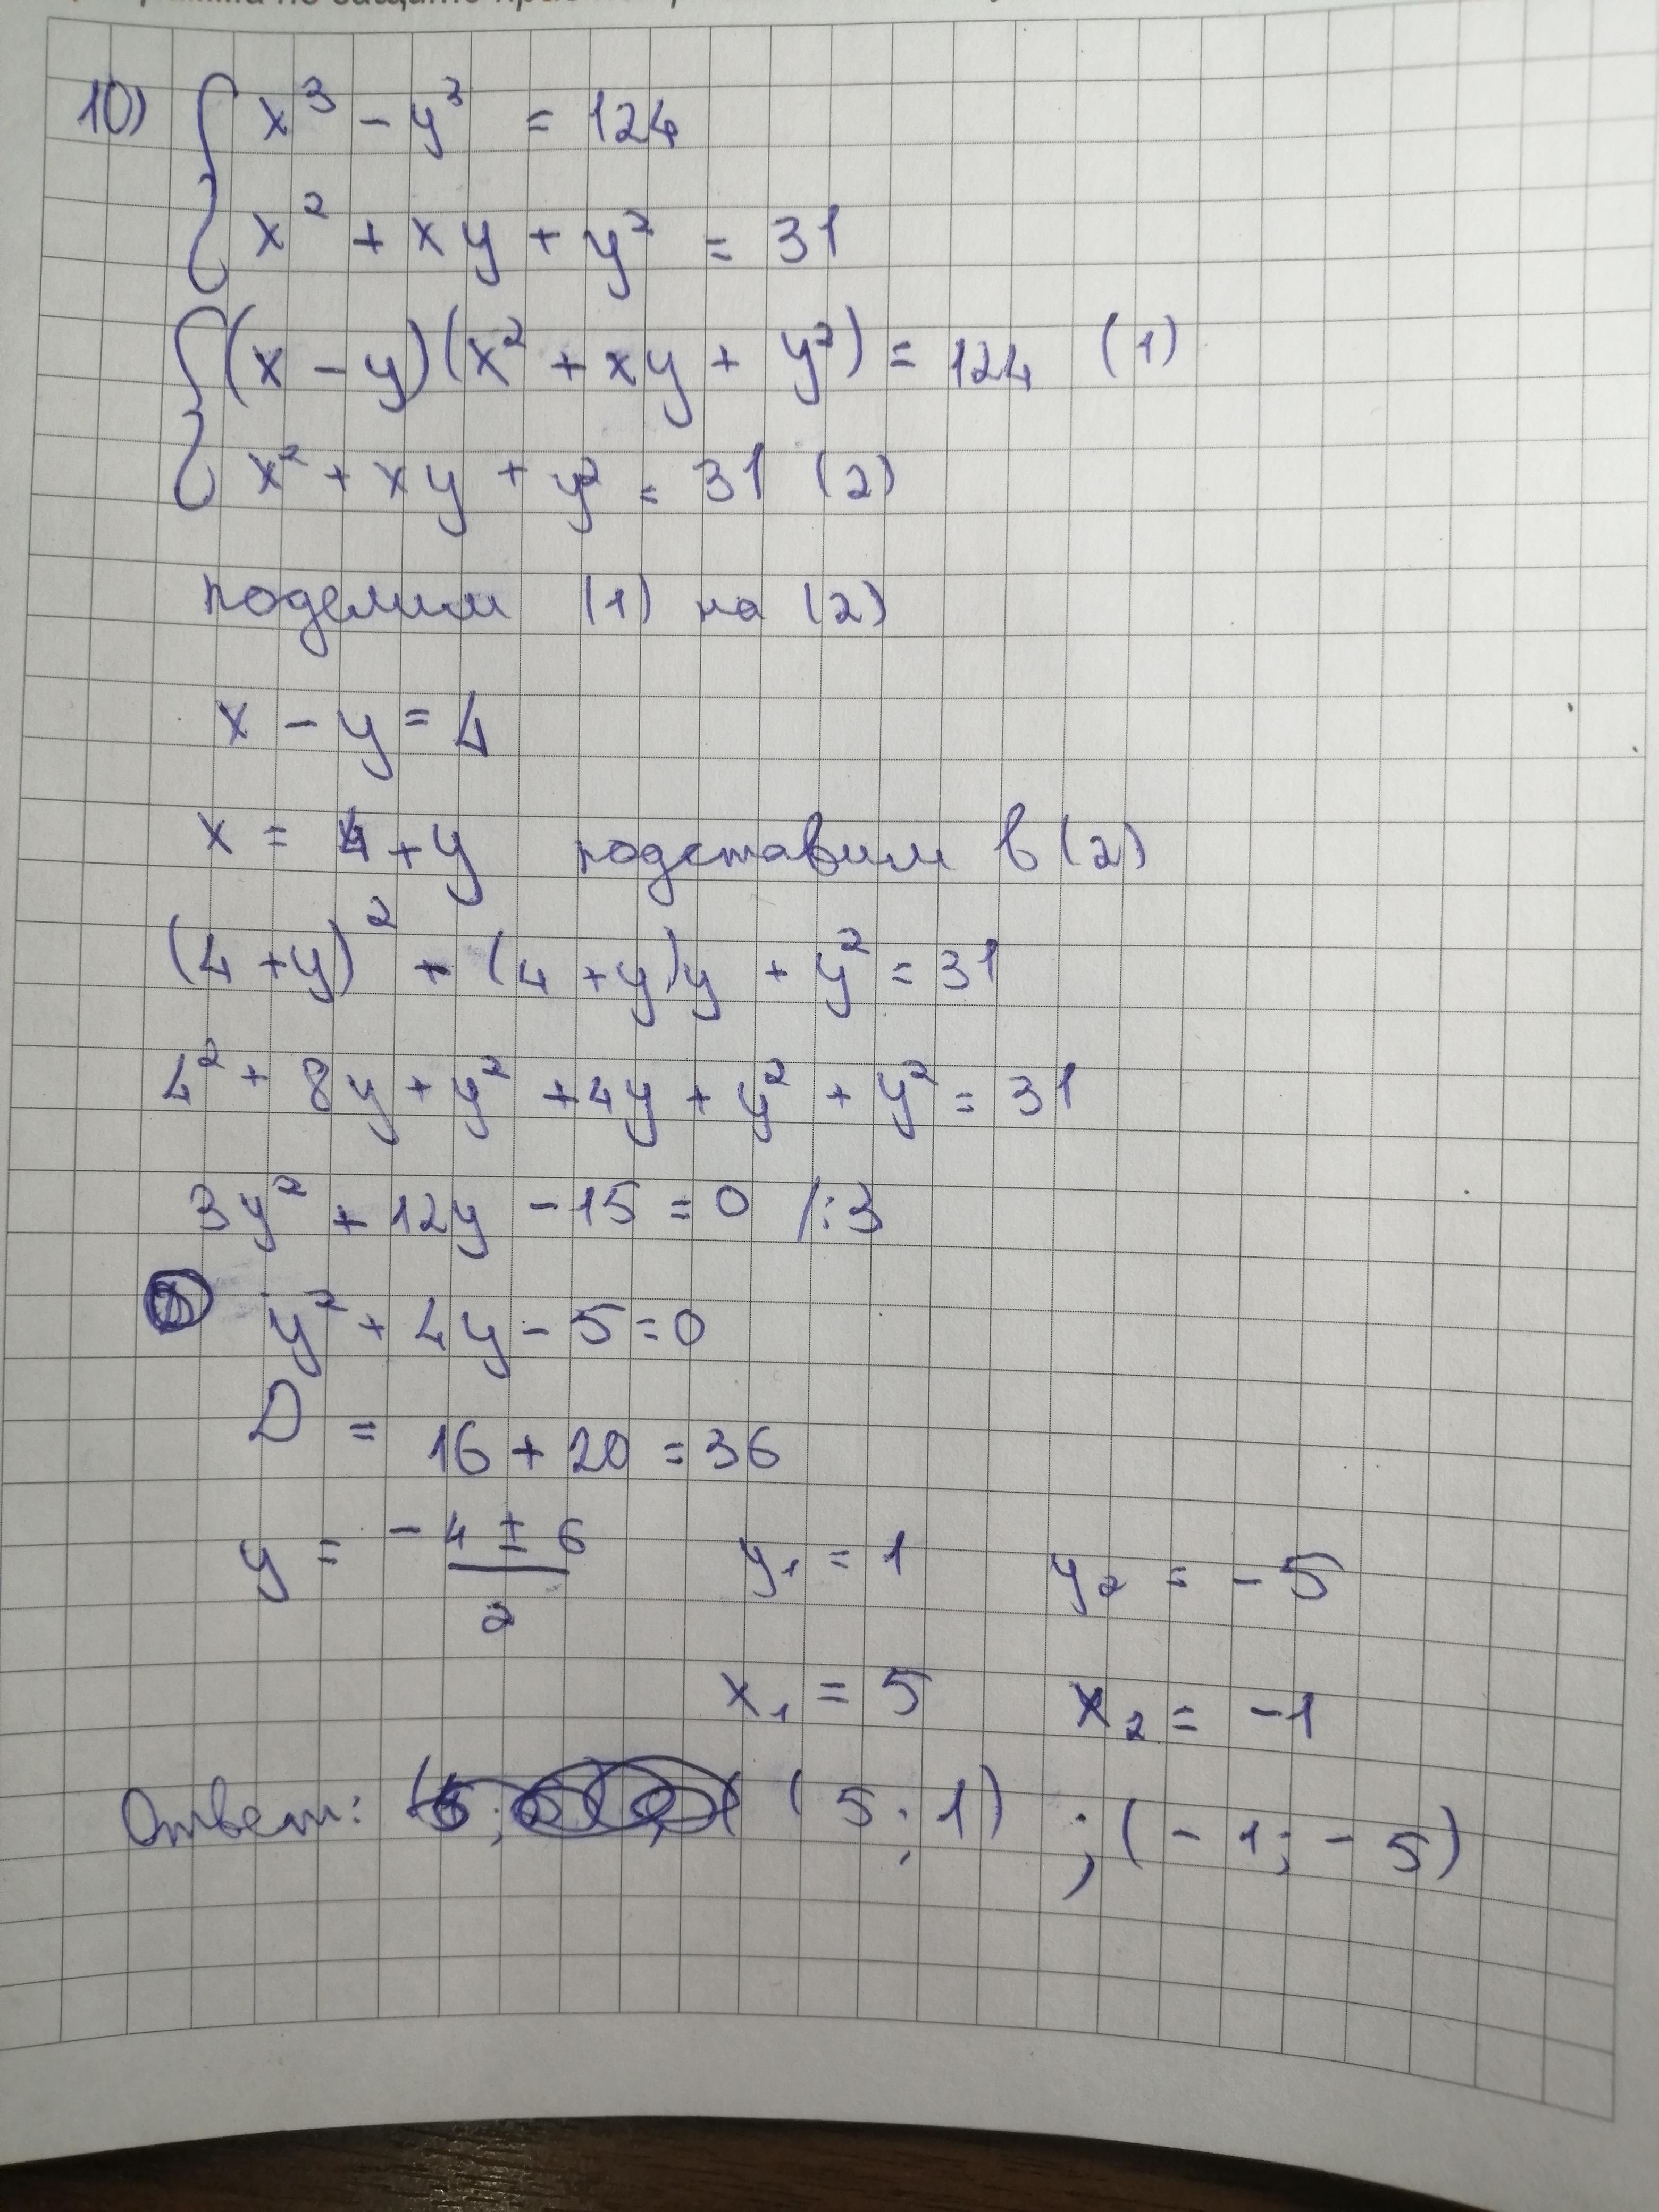 10) { x³ - y³ = 124
x² + xy + y² = 31
{ (x - y)(x² + xy + y²) = 124 (1)
x² + xy + y² = 31 (2)
поделим (1) на (2)
x - y = 4
x = 4 + y подставим в (2)
(4 + y)² + (4 + y)y + y² = 31
4² + 8y + y² + 4y + y² + y² = 31
3y² + 12y - 15 = 0 /:3
y² + 4y - 5 = 0
D = 16 + 20 = 36
y = (-4 ± 6)/2 y₁ = 1 y₂ = -5
x₁ = 5 x₂ = -1
Ответ: (5; 1) ; (-1; -5)